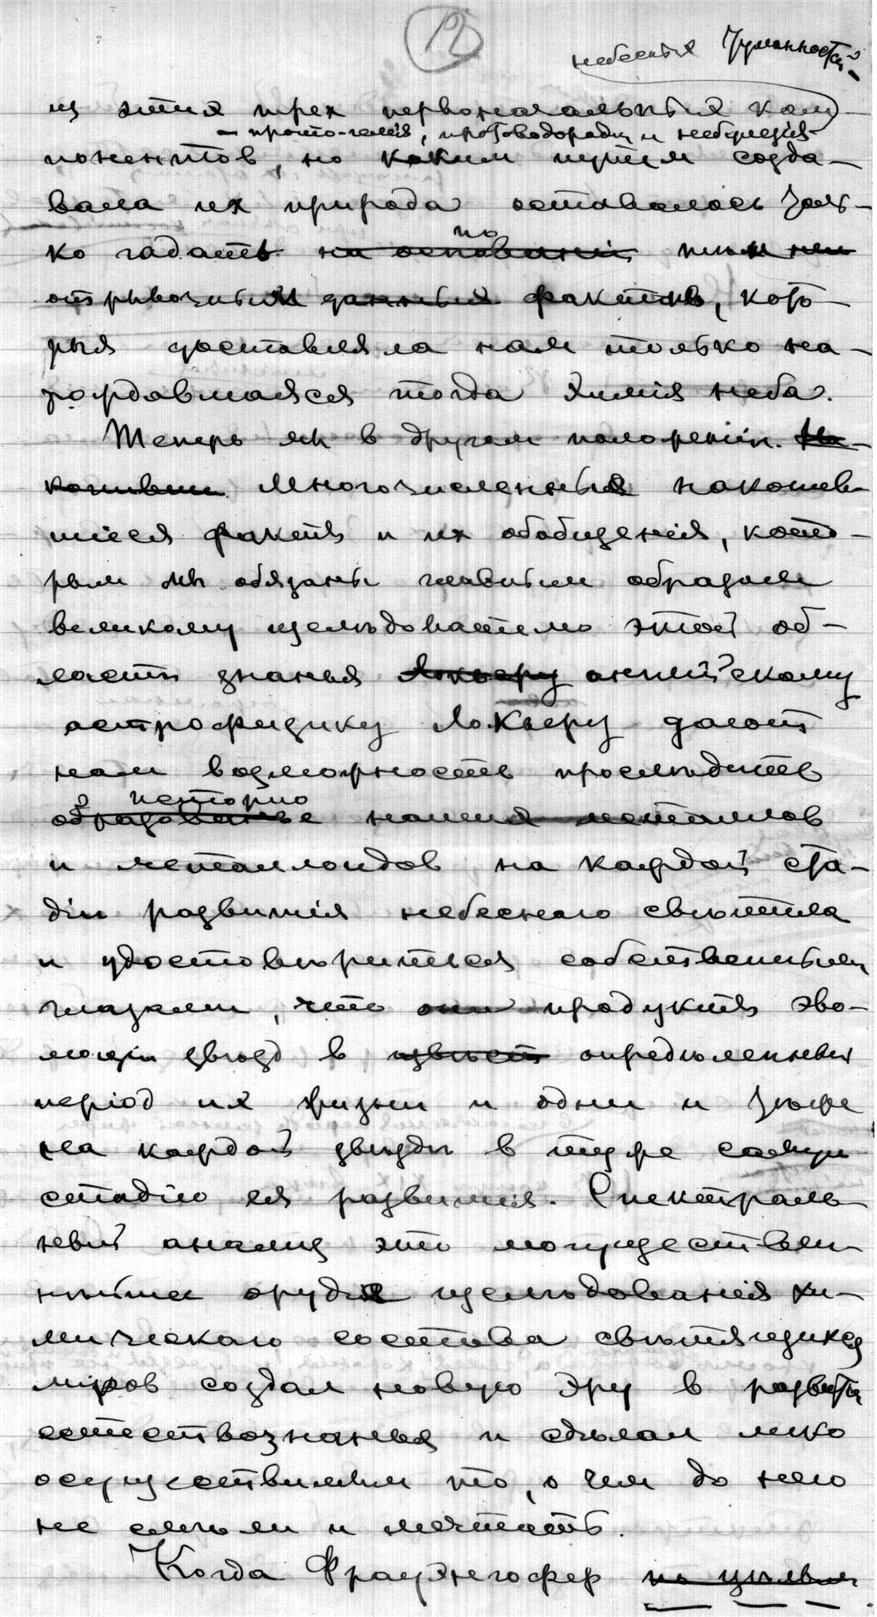 12
небесных туманностей
из этих трех первоначальных ком-
— прото-гелия, протоводорода и небулозия —
понентов, но каким путем созда-
вала их природа оставалось толь-
ко гадать на основании по тем
отрывочным данных фактам, кото-
рыя доставляла нам только на-
рождавшаяся тогда химія неба.
Теперь мы в другом положеніи. На-
копивши Многочисленныя накопив-
шіеся факты и их обобщенія, кото-
рым мы обязаны главным образом
великому изслѣдователю этой об-
ласти знанья Локьеру английскому
астрофизику Локьеру дают
нам возможность прослѣдить
исторію
образованье наших металлов
и металлоидов на каждой ста-
діи развитія небеснаго свѣтила
и удостовѣриться собственными
глазами, что они продукты эво-
люціи звѣзд в извѣст опредѣленный
період их жизни и одни и тѣже
на каждой звѣзды в туже самую
стадію ея развитія. Спектраль-
ный анализ это могуществен-
нѣйшее орудіе изслѣдованія хи-
мическаго состава свѣтящихся
миров создал новую эру в развитіи
естествознанья и сдѣлал легко
осуществимым то, о чем до него
не смѣли и мечтать.
Когда Фраунгофер